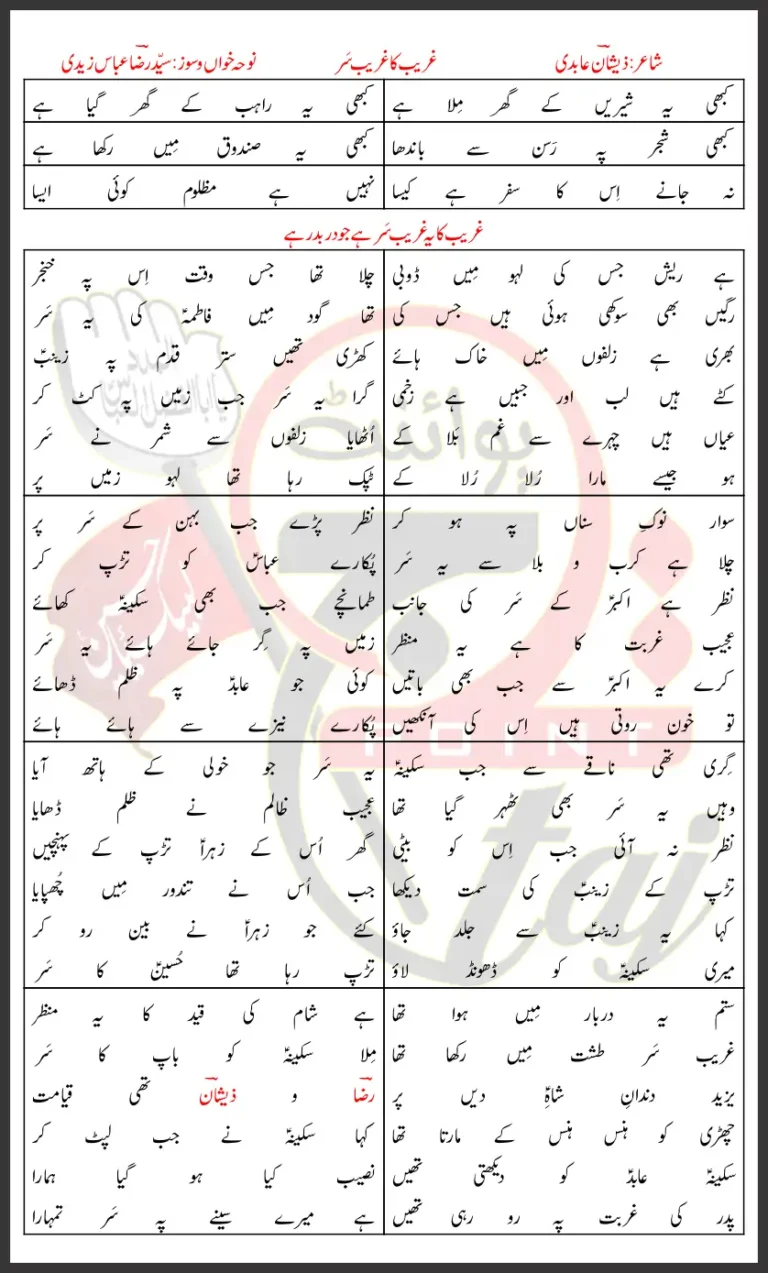 شاعر: ذیشانؔ عابدی غریب کا غریب سَر نوحہ خواں وسوز: سیّد رضاؔ عباس زیدی
کبھی یہ شیریں کے گھر مِلا ہے کبھی یہ راہب کے گھر گیا ہے
کبھی شجر پہ رَسن سے باندھا کبھی یہ صندوق مِیں رکھا ہے
نہ جانے اِس کا سفر ہے کیسا نہیں ہے مظلوم کوئی ایسا
غریب کا یہ غریب سَر ہے جو در بدر ہے
ہے ریش جس کی لہو مِیں ڈوبی
رگیں بھی سوکھی ہوئی ہیں جس کی
بھری ہے زلفوں مِیں خاک ہائے
کٹے ہیں لب اور جبیں ہے زخمی
عیاں ہیں چہرے سے غم بَلا کے
ہو جیسے مارا رُلا رُلا کے
چلا تھا جس وقت اِس پہ خنجر
تھا گود مِیں فاطمہؑ کی یہ سَر
کھڑی تھیں ستر قدم پہ زینبؑ
گرا یہ سَر جب زمیں پہ کٹ کر
اُٹھایا زلفوں سے شمر نے سَر
ٹپک رہا تھا لہو زمیں پر
سوار نوکِ سناں پہ ہو کر
چلا ہے کرب و بلا سے یہ سَر
نظر ہے اکبرؑ کے سَر کی جانب
عجیب غربت کا ہے یہ منظر
کرے یہ اکبرؑ سے جب بھی باتیں
تو خون روتی ہیں اِس کی آنکھیں
نظر پڑے جب بہن کے سَر پر
پُکارے عباسؑ کو تڑپ کر
طمانچے جب بھی سکینہؑ کھائے
زمیں پہ گِر جائے ہائے یہ سَر
کوئی جو عابدؑ پہ ظلم ڈھائے
پُکارے نیزے سے ہائے ہائے
گِری تھی ناقے سے جب سکینہؑ
وہیں یہ سَر بھی ٹھہر گیا تھا
نظر نہ آئی جب اِس کو بیٹی
تڑپ کے زینبؑ کی سمت دیکھا
کہا یہ زینبؑ سے جلد جاؤ
میری سکینہؑ کو ڈھونڈ لاؤ
یہ سَر جو خولی کے ہاتھ آیا
عجیب ظالم نے ظلم ڈھایا
گھر اُس کے زہراؑ تڑپ کے پہنچیں
جب اُس نے تندور مِیں چُھپایا
کئے جو زہراؑ نے بین رو کر
تڑپ رہا تھا حُسینؑ کا سَر
ستم یہ دربار مِیں ہوا تھا
غریب سَر طشت مِیں رکھا تھا
یزید دندانِ شاہِؑ دیں پر
چھڑی کو ہنس ہنس کے مارتا تھا
سکینہؑ عابدؑ کو دیکھتی تھیں
پدر کی غربت پہ رو رہی تھیں
ہے شام کی قید کا یہ منظر
مِلا سکینہؑ کو باپ کا سَر
رضاؔ و ذیشانؔ تھی قیامت
کہا سکینہؑ نے جب لپٹ کر
نصیب کیا ہو گیا ہمارا
ہے میرے سینے پہ سَر تمہارا
پوائنٹ
POINT
taj